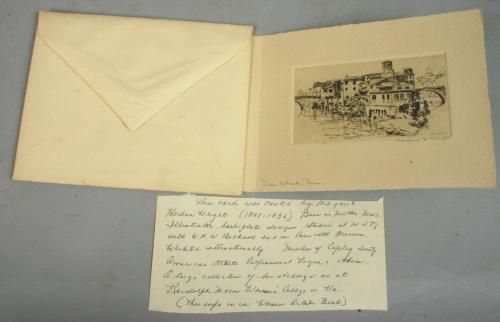 Tiber Island, Rome.
Margaret H. Wright
This card was created by Margaret
Hardon Wright (1869-1936) Born in Newton Mass
Illustrator bookplate designer. Studied at M.I.T.
with W.H.W. Bicknell and in Paris with Merson
Exhibited internationally. Member of Copley Society
American Artists Professional League + others.
A large collection of her etchings are at
Randolph Macon Woman's College in Va.
(This info is in Women Artists Book)